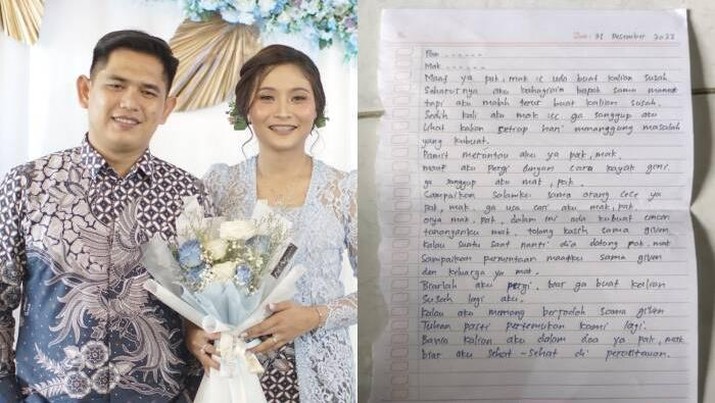 31 Desember 2022
Pak ......
Mak .....
Maaf ya pak, mak uda buat kalian susah
Seharusnya aku bahagiain bapak sama mamak
tapi aku malah terus buat kalian susah.
Sedih kali aku mak ga sanggup aku
lihat kalian setiap hari menanggung masalah
yang kubuat.
Pamit merantau aku ya pak, mak.
maaf aku Pergi dengan cara kayak gini
ga sanggup aku mak, pak.
Sampaikan salamku sama orang ya
pak, mak. ga usa cari aku mak, pak.
oiya mak, pak, dalam ini ada kubuat cincin
tunanganku mak, tolong kasih sama given
kalau suatu saat nanti dia datang pak, mak
Sampaikan permintaan maafku sama given
dan keluarga ya mak.
Biarlah aku pergi, biar ga buat kalian
Susah lagi aku.
Kalau aku memang berjodoh sama given
Tuhan pasti pertemukan kami lagi.
Bawa kalian aku dalam doa ya pak, mak
biar aku sehat-sehat di perantauan.